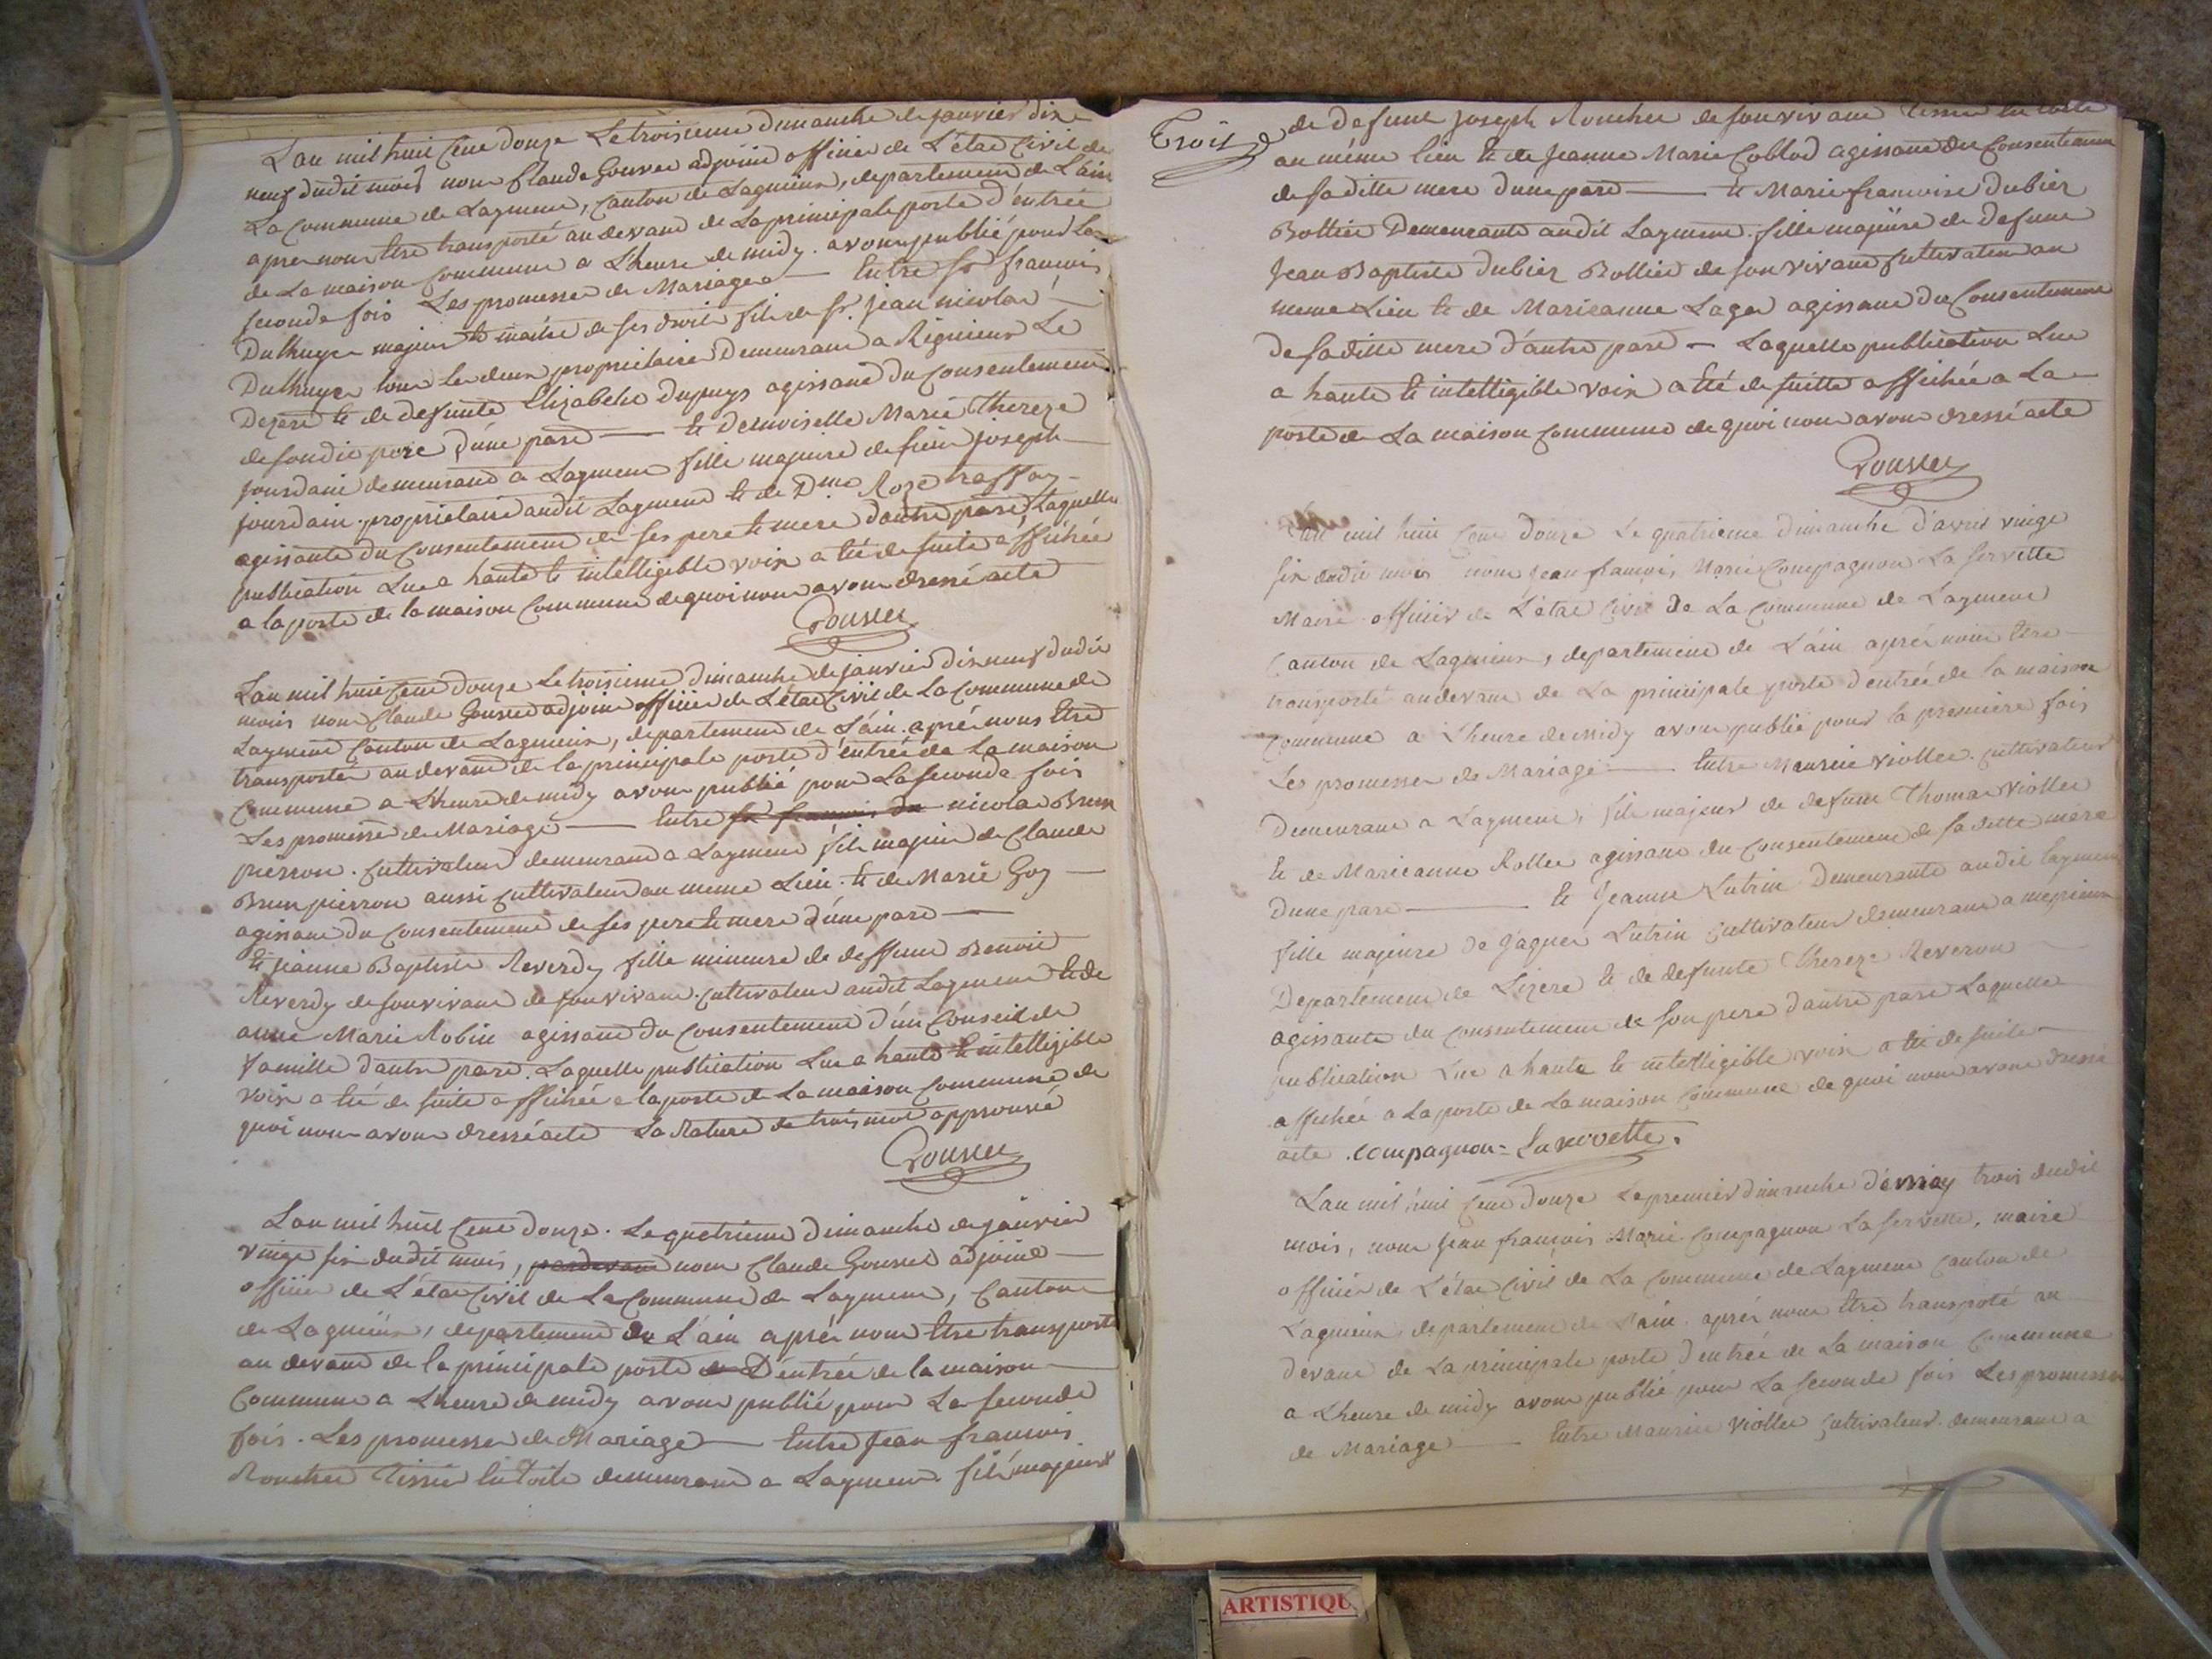 L'an mil huit Cent douze Le troisieme dimanche de janvier dix
neuf dudit mois nous Claude Gousset adjoint officier de L'état Civil de
La Commune de Laymens, Canton de Lagnieux, departement de L'ain
apres nous être transporté au devant de La principale porte d'entrée
de La maison Commune a L'heure de midy. avons publié pour La
seconde fois Les promesses de Mariage — Entre Sr françois
Duthuge majeur et maitre de ses droits fils de Sr. Jean nicolas
Duthuge tous les deux proprietaires Demeurant a Regnieux Le
Dezert et de defunte Elizabeth dupuys agissant du Consentement
de son dit pere d'une part — et demoiselle Marie Thereze
jourdain demeurant a Laymens fille majeure de sieur joseph
jourdain. proprietaire audit Laymens et de Dme Roze
agissante du Consentement de ses pere et mere d'autre part Laquelle
publication Lue a haute et intelligible voix a été de suite affichée
a la porte de la maison Commune de quoi nous avons dressé acte
Gousset
L'an mil huit Cent douze Le troisieme dimanche de janvier dix neuf dudit
mois nous Claude Gousset adjoint officier de L'état Civil de La Commune de
Laymens Canton de Lagnieux, departement de L'ain. aprés nous être
transportés au devant de la principale porte d'entrée de La maison
Commune a L'heure de midy avons publié pour La seconde fois
Les promesse de Mariage — Entre sr françois du nicolas Brun
pierron. Cultivateur demeurant a Laymens fils majeur de Claude
Brun pierron aussi Cultivateur au meme Lieu. et de Marie Goy —
agissant du Consentement de ses pere et mere d'une part —
et jeanne Baptiste Reverdy fille mineure de deffunt Benoit
Reverdy de son vivant de son vivant. Cultivateur audit Laymens et de
anne Marie Robin agissant du Consentement d'un Conseil de
famille d'autre part. Laquelle publication Lue a haute et intelligible
voix a été de suite affichée a la porte de La maison Commune de
quoi nous avons dressé acte La Rature de trois mot approuvé
Gousset
L'an mil huit Cent douze. Le quatrieme dimanche de janvier
vingt six dudit mois, pardevant nous Claude Gousset adjoint —
officier de L'état Civil de La Commune de Laymens, Canton
de Lagnieux, departement de L'ain aprés nous être transporté
au devant de la principale porte de D'entrée de la maison
Commune a L'heure de midy avons publié pour La seconde
fois. Les promesses de Mariage — Entre Jean françois
Rouchet Tissier en toile demeurant a Laymens fils majeur
Trois
de defunt joseph Rouchet de son vivant Tissier en toile
au même lieu et de Jeanne Marie Coblod agissant du Consentement
de saditte mere d'une part — et Marie francoise Dubier
Bottier Demeurante audit Laymens. fille majeure de defunt
Jean Baptiste Dubier Bottier de son vivant Cultivateur au
meme Lieu et de Marieanne Laga agissant du Consentement
de saditte mere d'autre part — Laquelle publication Lue
a haute et intelligible voix a été de suitte affichée a La
porte de La maison Commune de quoi nous avons dressé acte
Gousset
L'an mil huit Cent douze Le quatrieme dimanche d'avril vingt
six dudit mois nous Jean françois, Marie Compagnon La Servette
Maire officier de L'état Civil De La Commune de Laymens
Canton de Lagnieux, departement de L'ain aprés nous être
transporté au devant de La principale porte d'entrée de la maison
Commune a L'heure de midy avons publié pour la premiere fois
Les promesses de Mariage — Entre Maurice Viollet. Cultivateur
Demeurant a Laymens, fils majeur de defunt Thomas Viollet
et de Marieanne Rollet agissant du Consentement de sa ditte mere
D'une part — et Jeanne Lutrin Demeurante audit Laymens
fille majeure De Jaques Lutrin Cultivateur demeurant a mepieux
Departement de Lizere et de defunte Thereze Reveron
agissante du Consentement de son pere d'autre part Laquelle
publication Lue a haute et intelligible voix a été de suite
affichée a La porte de La maison Commune de quoi nous avons dressé
acte. Compagnon = La servette.
L'an mil huit Cent douze Le premier dimanche de may trois dudit
mois, nous Jean françois Marie Compagnon La servette, maire
officier de L'état Civil de La Commune de Laymens Canton de
Lagnieux departement de L'ain. aprés nous être transporté au
devant de La principale porte d'entrée de La maison Commune
a L'heure de midy avons publié pour La seconde fois Les promesses
de Mariage — Entre Maurice Viollet Cultivateur. demeurant a
ARTISTIQU